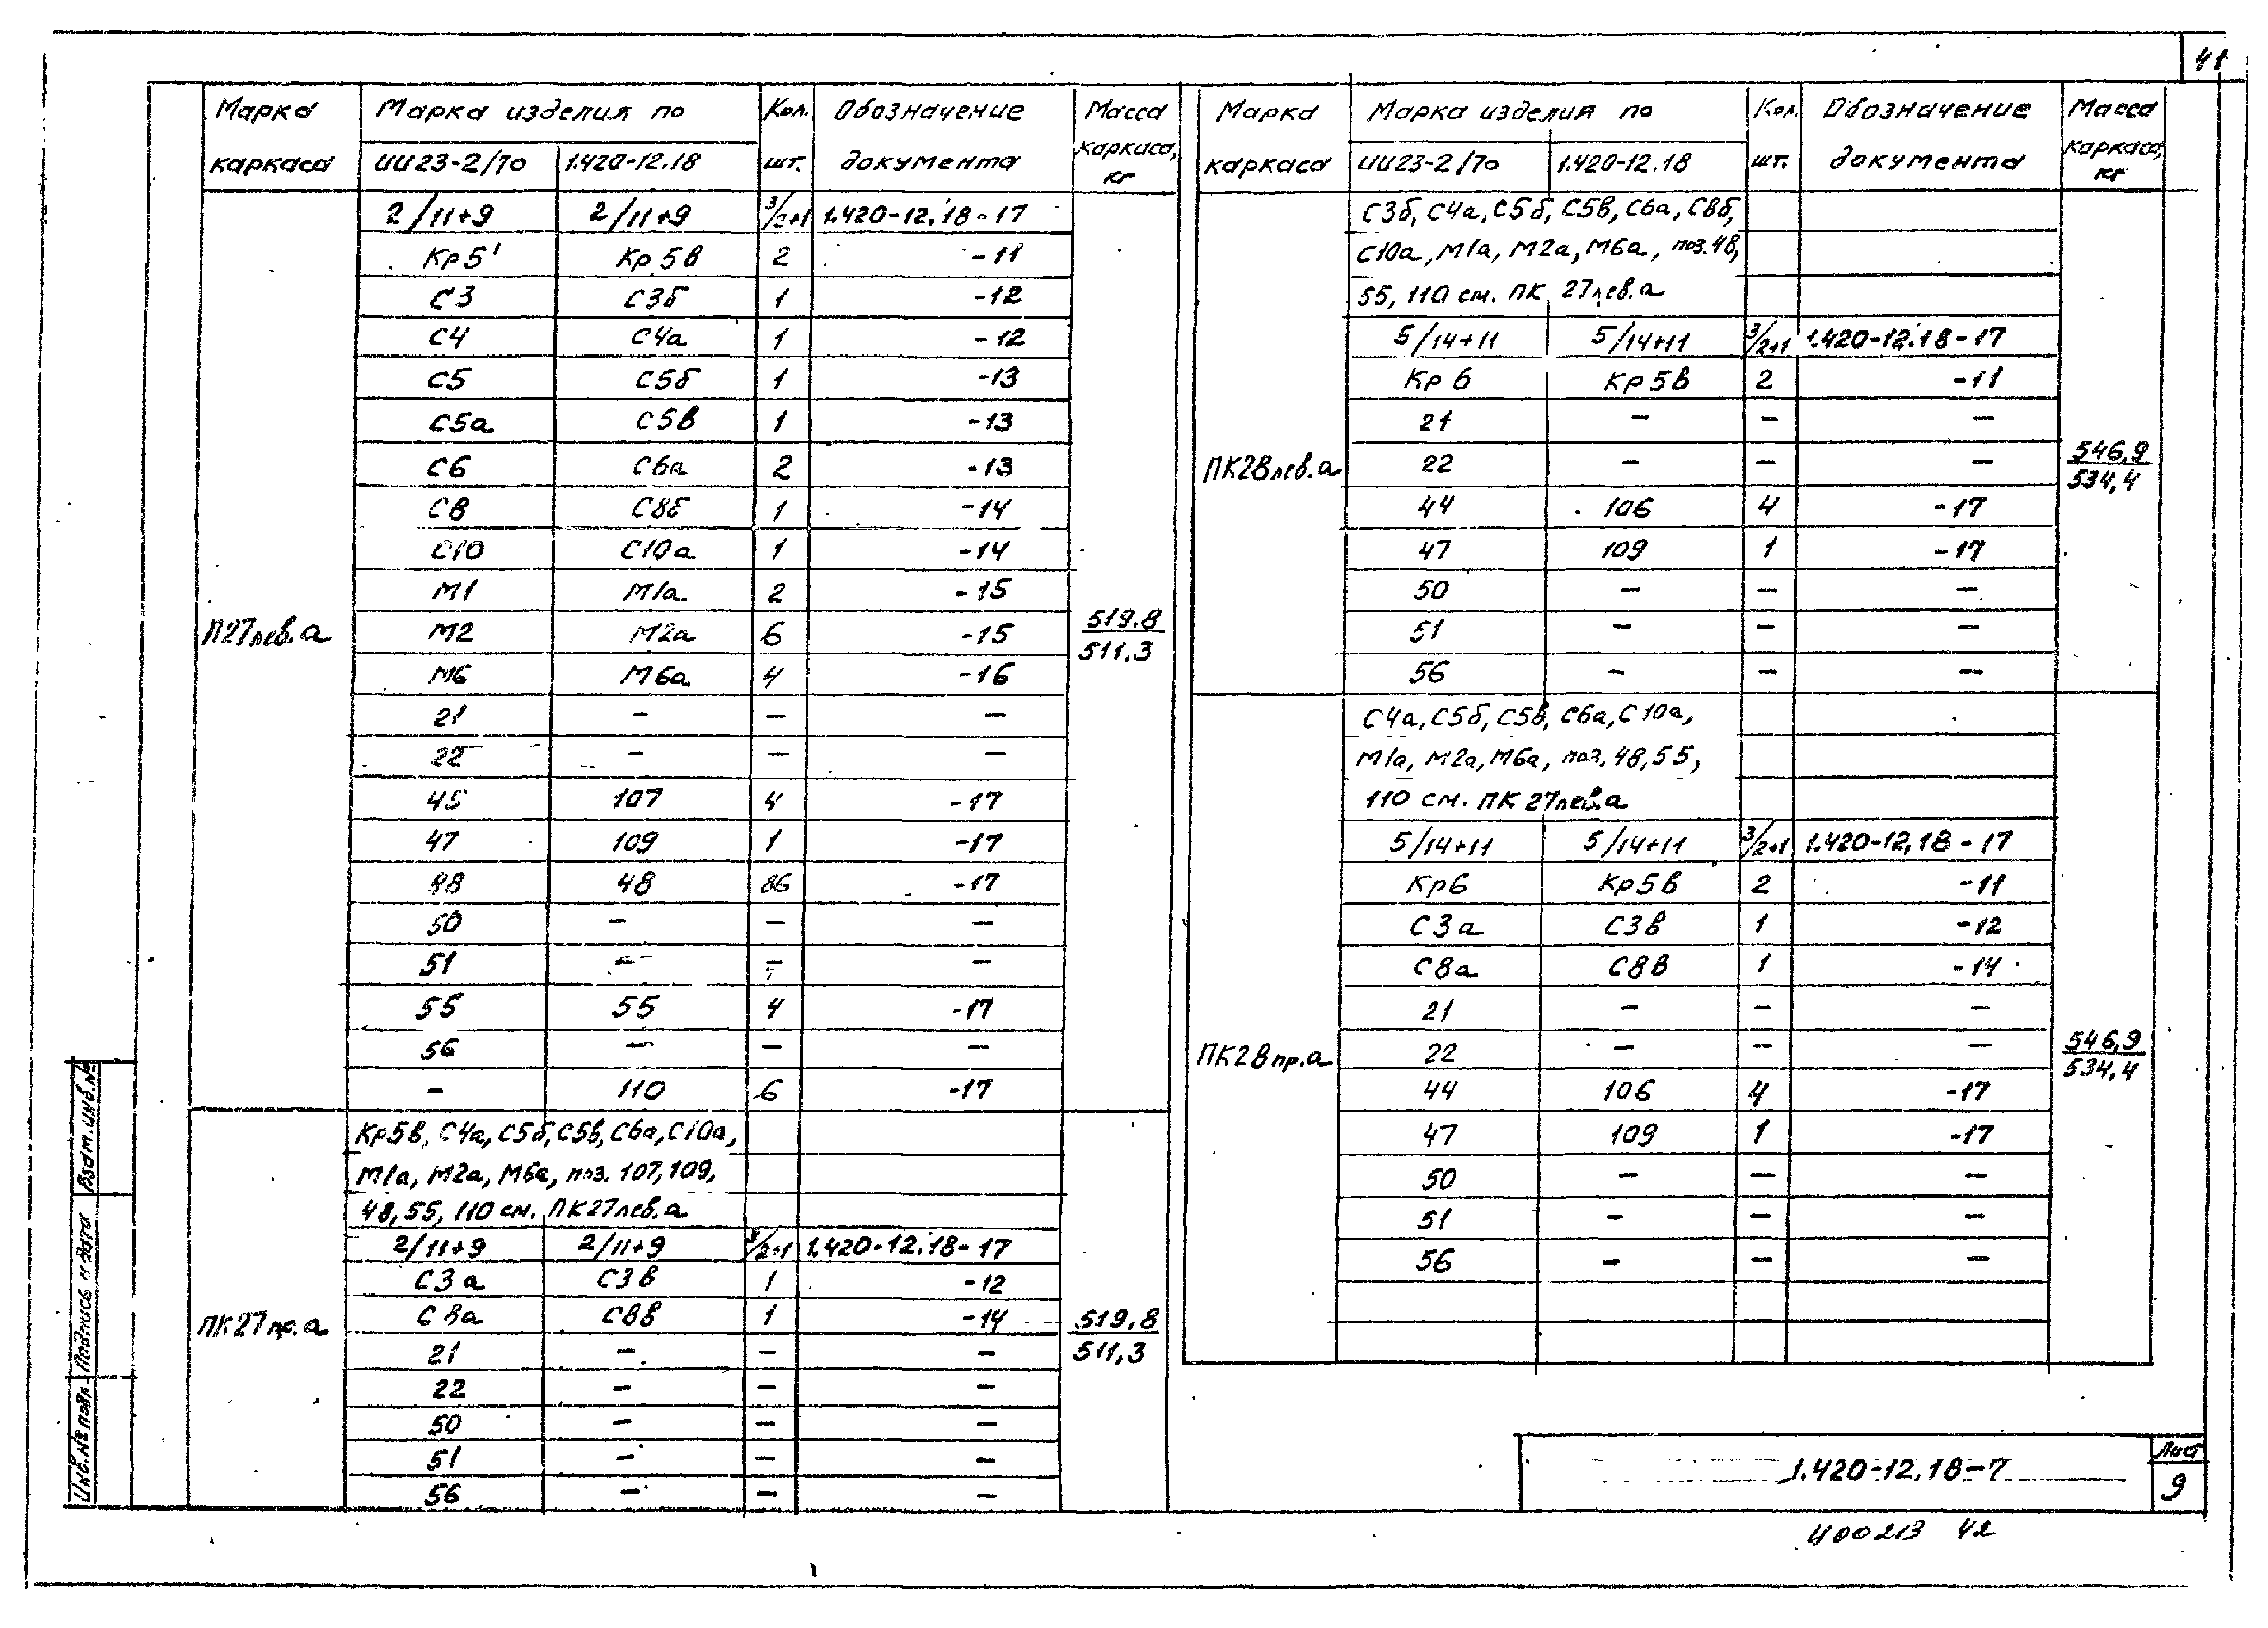 41
Марка каркаса | Марка изделия по | Кол. шт. | Обозначение документа | Масса каркаса, кг
ИИ23-2/70 | 1.420-12.18
2/11+9 | 2/11+9 | 3/2+1 | 1.420-12.18-17
Кр5' | Кр5в | 2 | -11
С3 | С3б | 1 | -12
С4 | С4а | 1 | -12
С5 | С5б | 1 | -13
С5а | С5в | 1 | -13
С6 | С6а | 2 | -13
С8 | С8б | 1 | -14
С10 | С10а | 1 | -14
М1 | М1а | 2 | -15
П27лев.а | М2 | М2а | 6 | -15 | 519.8/511,3
М6 | М6а | 4 | -16
21 | – | – | –
22 | – | – | –
45 | 107 | 4 | -17
47 | 109 | 1 | -17
48 | 48 | 86 | -17
50 | – | – | –
51 | – | – | –
55 | 55 | 4 | -17
56 | – | – | –
– | 110 | 6 | -17
Кр5в, С4а, С5б, С5в, С6а, С10а,
М1а, М2а, М6а, поз. 107, 109,
48, 55, 110 см. ПК27лев.а
2/11+9 | 2/11+9 | 3/2+1 | 1.420-12.18-17
С3а | С3в | 1 | -12
ПК27пр.а | С8а | С8в | 1 | -14 | 519,8/511,3
21 | – | – | –
22 | – | – | –
50 | – | – | –
51 | – | – | –
56 | – | – | –
Марка каркаса | Марка изделия по | Кол. шт. | Обозначение документа | Масса каркаса, кг
ИИ23-2/70 | 1.420-12.18
С3б, С4а, С5б, С5в, С6а, С8б,
С10а, М1а, М2а, М6а, поз.48,
55, 110 см. ПК 27лев.а
5/14+11 | 5/14+11 | 3/2+1 | 1.420-12.18-17
Кр6 | Кр5в | 2 | -11
21 | – | – | –
ПК28лев.а | 22 | – | – | – | 546,9/534,4
44 | 106 | 4 | -17
47 | 109 | 1 | -17
50 | – | – | –
51 | – | – | –
56 | – | – | –
С4а, С5б, С5в, С6а, С10а,
М1а, М2а, М6а, поз. 48, 55,
110 см. ПК 27лев.а
5/14+11 | 5/14+11 | 3/2+1 | 1.420-12.18-17
Кр6 | Кр5в | 2 | -11
С3а | С3в | 1 | -12
С8а | С8в | 1 | -14
21 | – | – | –
ПК28пр.а | 22 | – | – | – | 546,9/534,4
44 | 106 | 4 | -17
47 | 109 | 1 | -17
50 | – | – | –
51 | – | – | –
56 | – | – | –
Взам.инв.№
Подпись и дата
Инв.№ подл.
1.420-12.18-7
Лист
9
400213 42